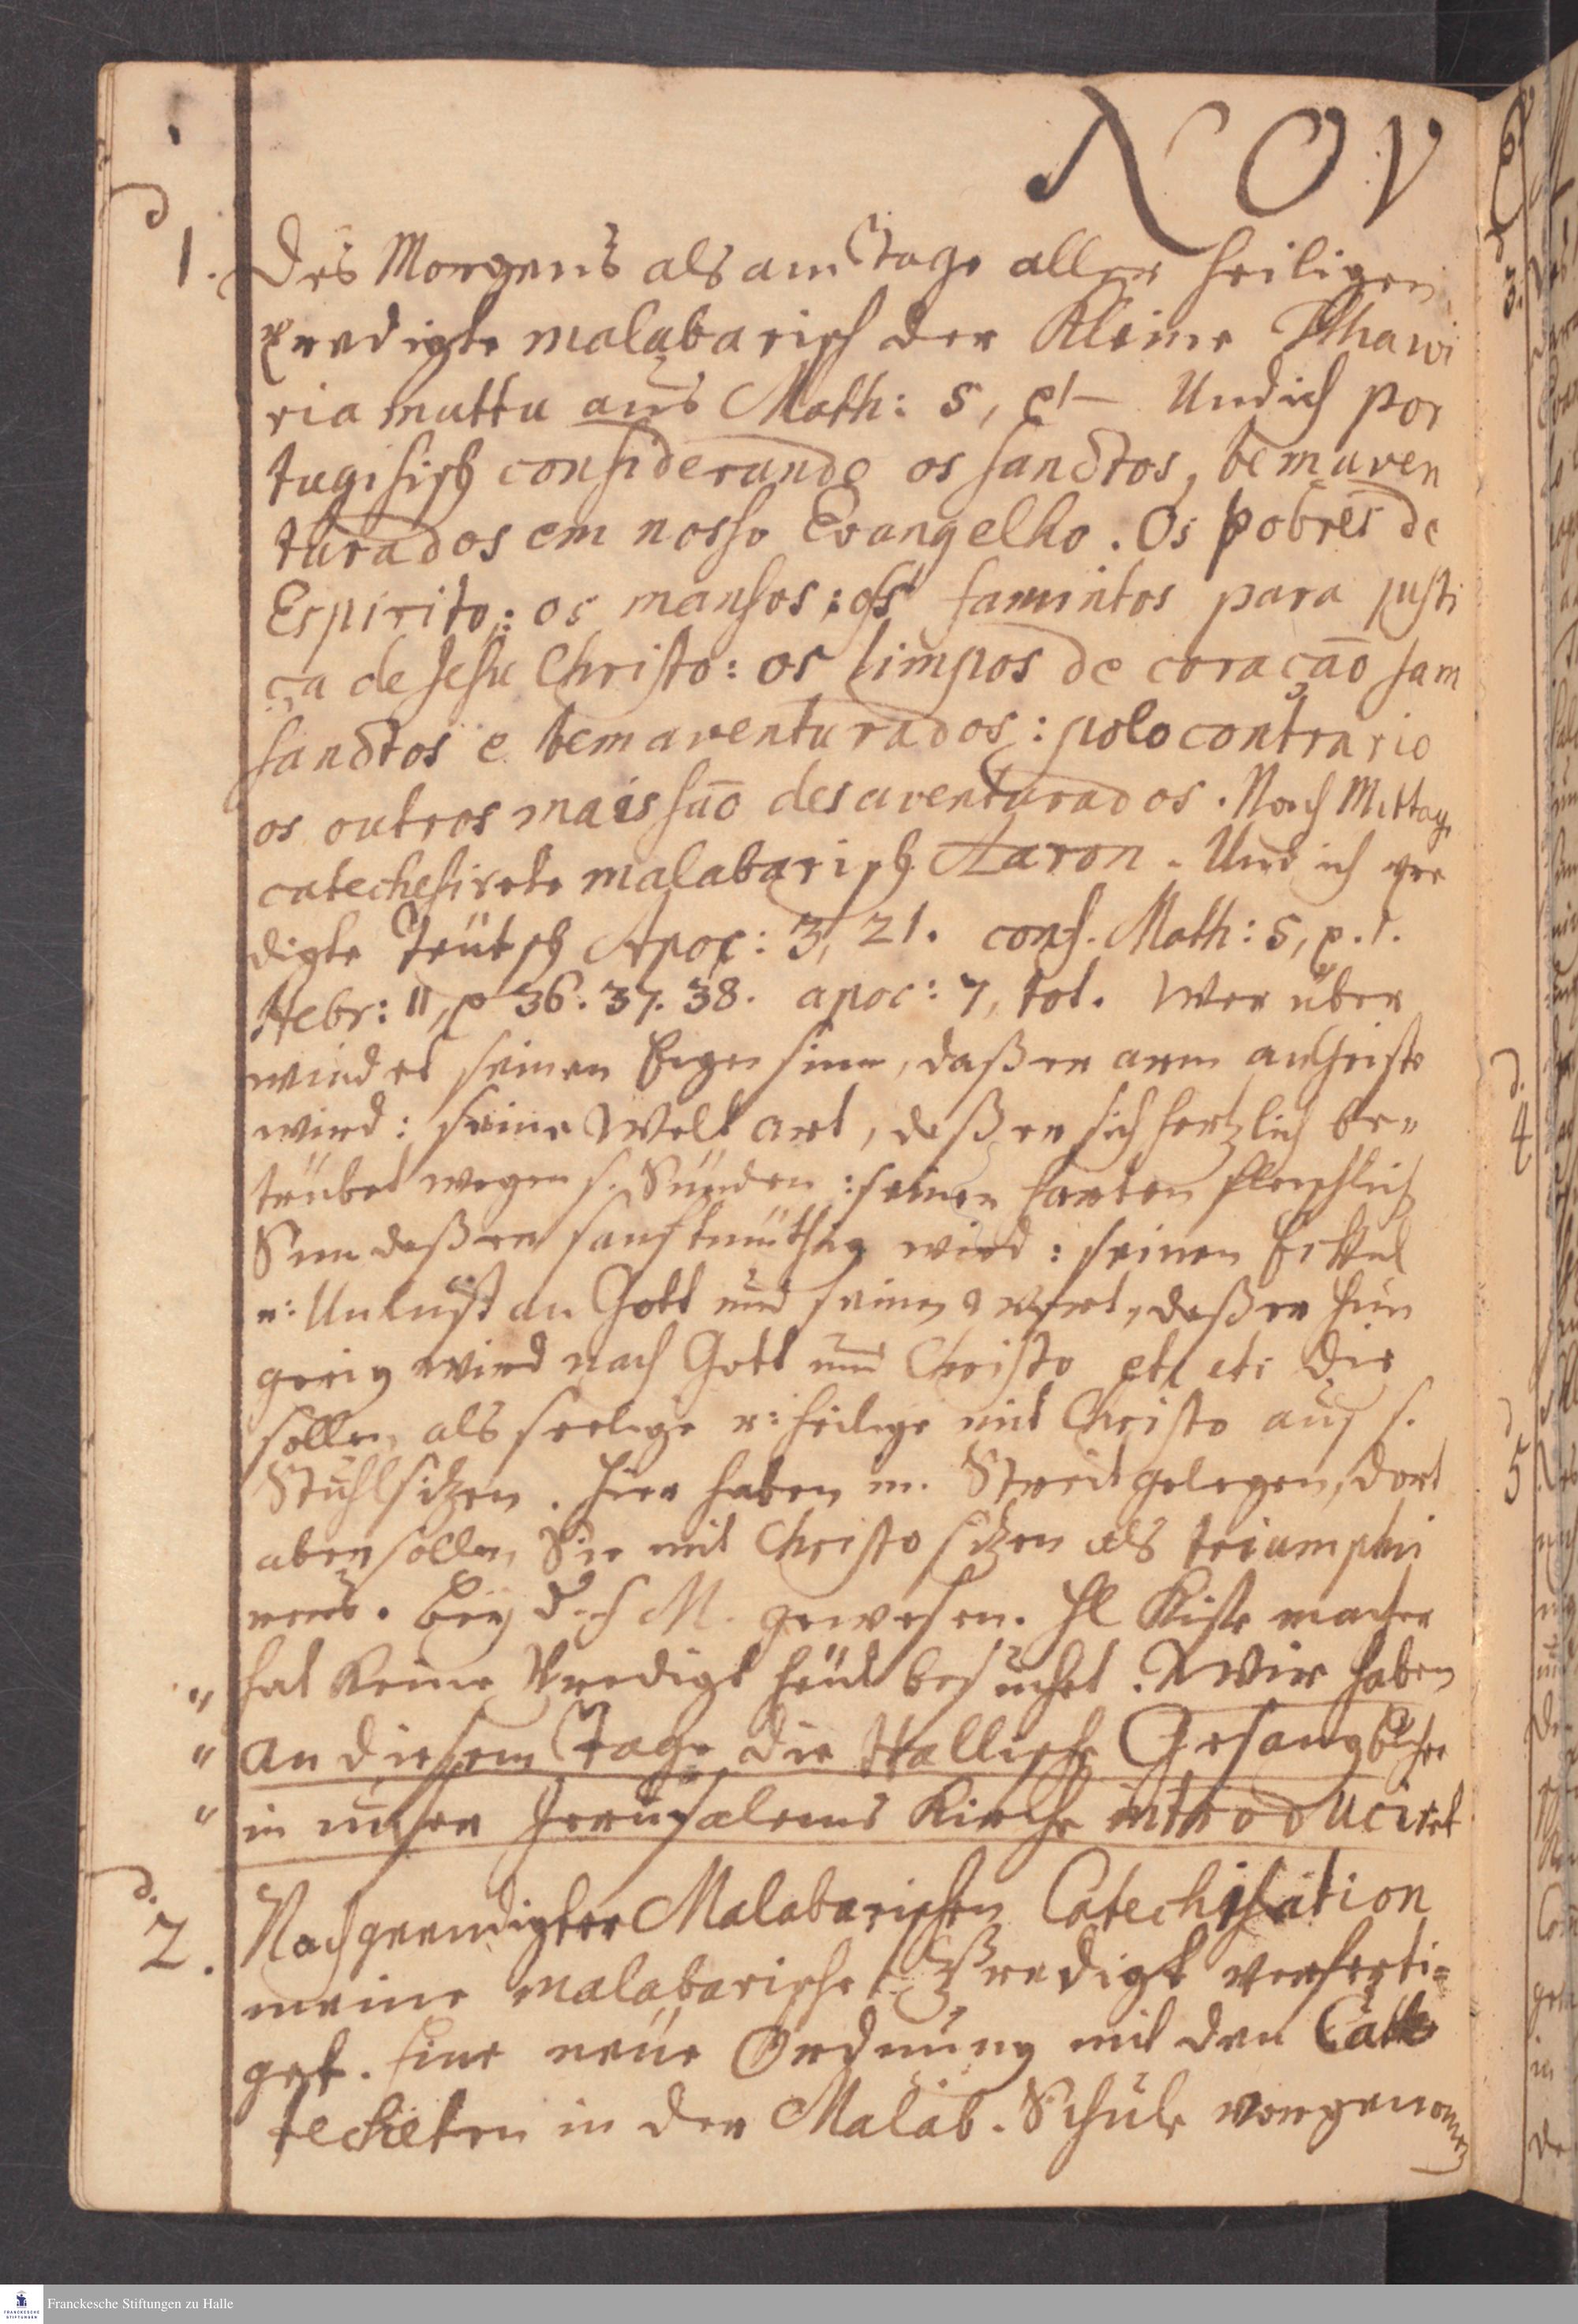 NOV
d
1. Des Morgens als am Tage aller Heiligen
predigte malabarisch der Kleine Schawri
ria muttu aus Math: 5, Und ich por
tugisisch considerando os sanctos, bemaven
turados em nosso Evangelho. Os pobres de
Espirito: os mansos: os famintos para justi
ça de Jesu Christo: os limpos de coraçaõ sam
sanctos e bemaventurados: polo contrario
os outros mais saõ desaventurados. Nach Mittag
catechesirete malabarisch Aaron. Und ich pre
digte Teütsch Apoc: 3, 21. conf. Math: 5, p. 1.
Hebr: 11, p 36. 37. 38. apoc: 7, tot. Wer über
windet seinen Eigen sinn, daß er arm an Geiste
wird: seine Welt art, daß er sich hertzlich be-
trübet wegen s. Sünden: seinen harten fleischlich
Sinn daß er sanftmüthig wird: seinen Eckel
u: Unlust an Gott und seinem wort, daß er hun
gerig wird nach Gott und Christo etc etc Die
sollen als seelige u: heilige mit Christo auf s.
Stuhl sitzen. Hier haben im Streit gelegen, dort
aber sollen Sie mit Christo sitzen als triumphi
rend. Bey d. H M. gewesen. H Kistemacher
" hat keine Predigt heüt besuchet. Wir haben
" an diesem Tage die Hallische Gesangbücher
" in unser Jerusalems Kirche introduciret
d.
2. Nach geendigter Malabarischen Catechisation
meine malabarische Predigt verferti-
get. Eine neüe Ordnung mit den Cate
techeten in der Malab. Schule vorgenommen
d.
4
5
Franckesche Stiftungen zu Halle